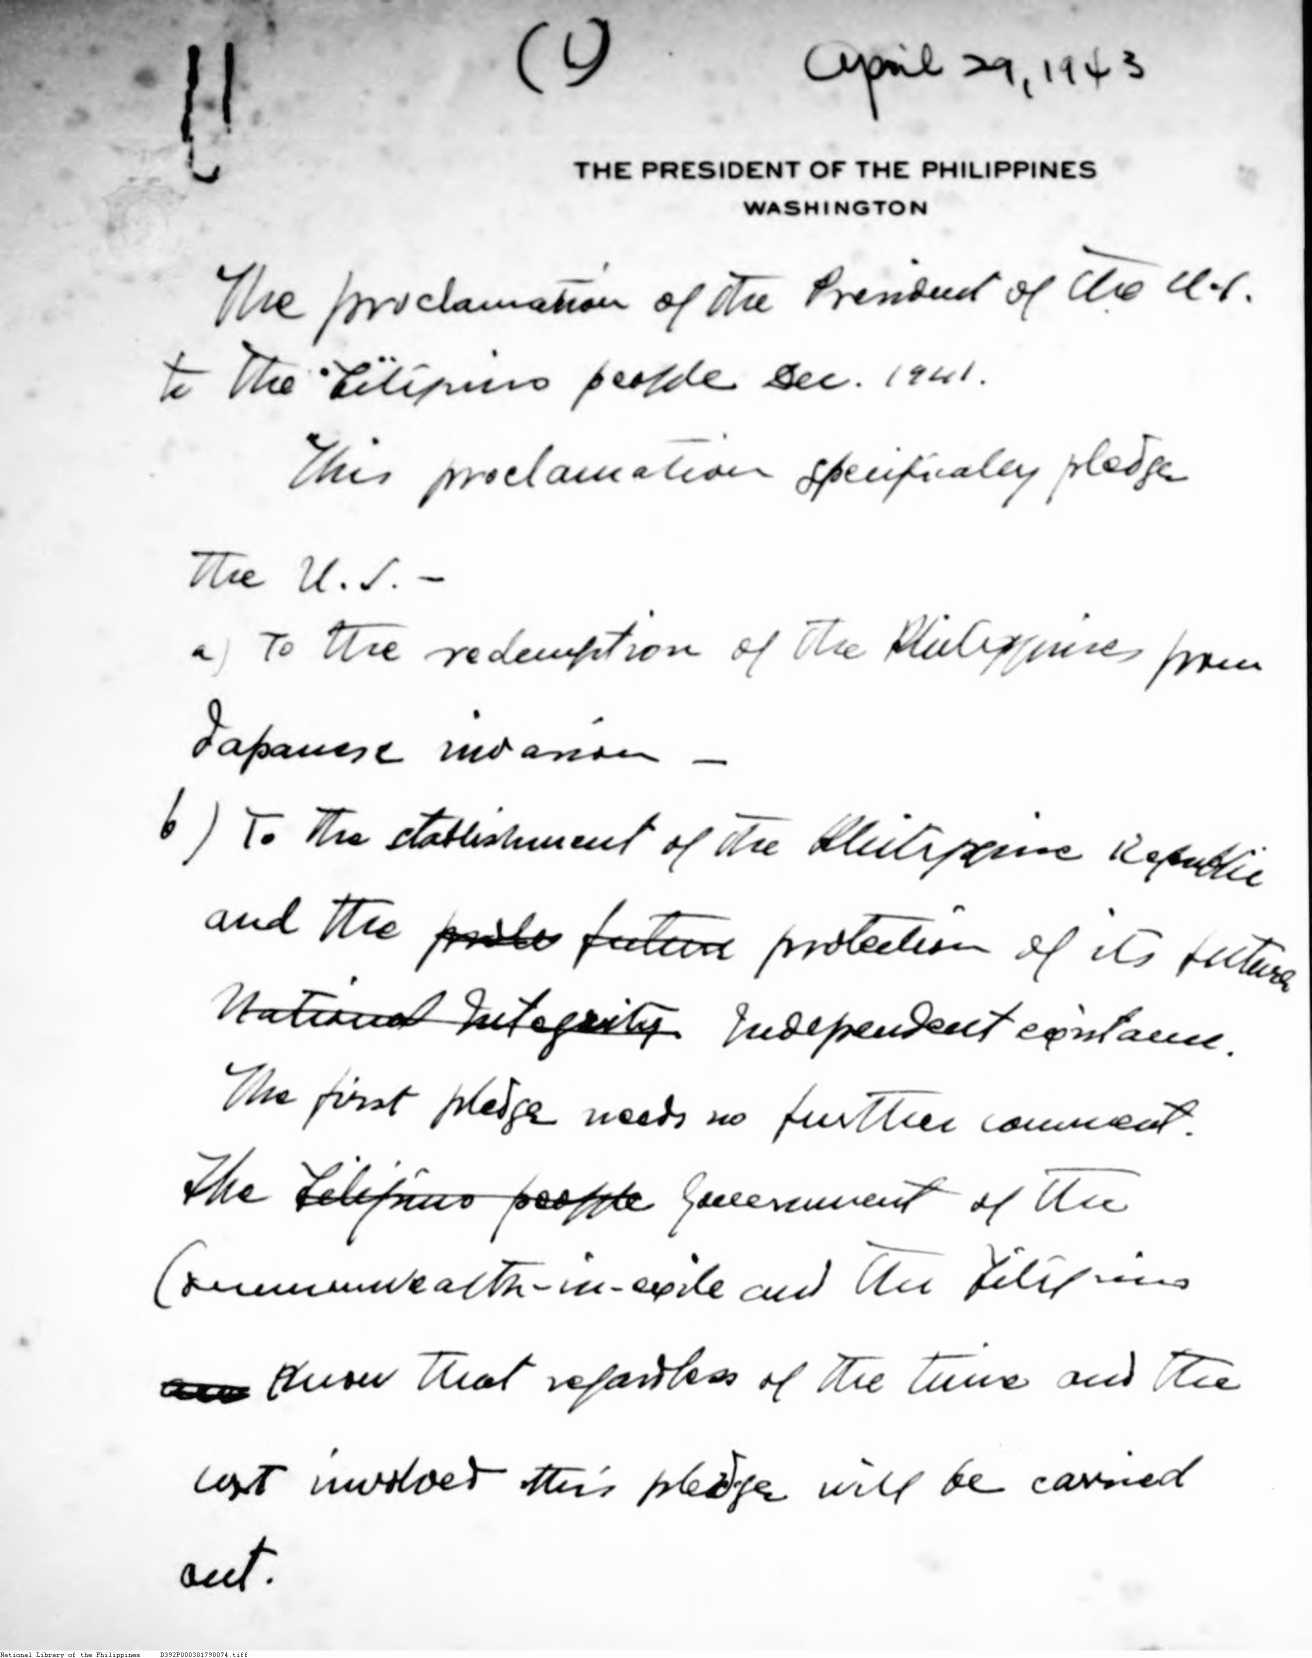 (1)
April 29, 1943
THE PRESIDENT OF THE PHILIPPINES
WASHINGTON
The proclamation of the President of the U.S.
to the Filipino people Dec. 1941.
This proclamation specifically pledge
the U.S. -
a) To the redemption of the Philippines from
Japanese invasion -
b) To the establishment of the Philippine Republic
and the future protection of its future
National Integrity Independent existence.
The first pledge needs no further comment.
The Filipino people Government of the
Commonwealth-in-exile and the Filipinos
are know that regardless of the time and the
cost involved this pledge will be carried
out.
National Library of the Philippines D392P000301790074.tiff